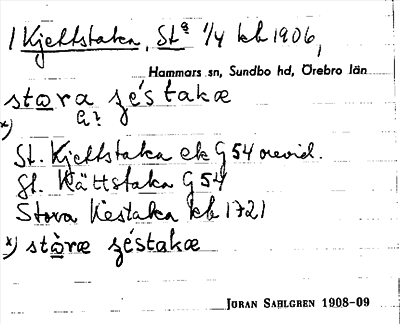 1 Kjettstaka, Stª 1/4 kb 1906,
Hammars sn, Sundbo hd, Örebro län
stœra zés takæ
x) a?
St. Kjettstaka ek G 54 orevid.
St. Kättstaka G 54
Stora Kiestaka kb 1721
x) stòræ zéstakæ
JÖRAN SAHLGREN 1908-09